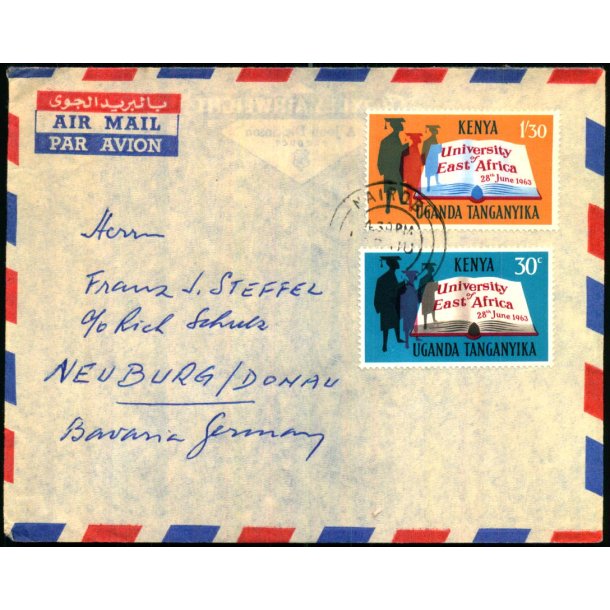 بالبريد الجوى
AIR MAIL
PAR AVION
KENYA 1/30
University
of
East Africa
28th June 1963
UGANDA TANGANYIKA
NAIROBI
4.30PM
KENYA 30c
University
of
East Africa
28th June 1963
UGANDA TANGANYIKA
Herrn
Franz J. STEFFEL
c/o Rich Schulz
NEUBURG/DONAU
Bavaria Germany